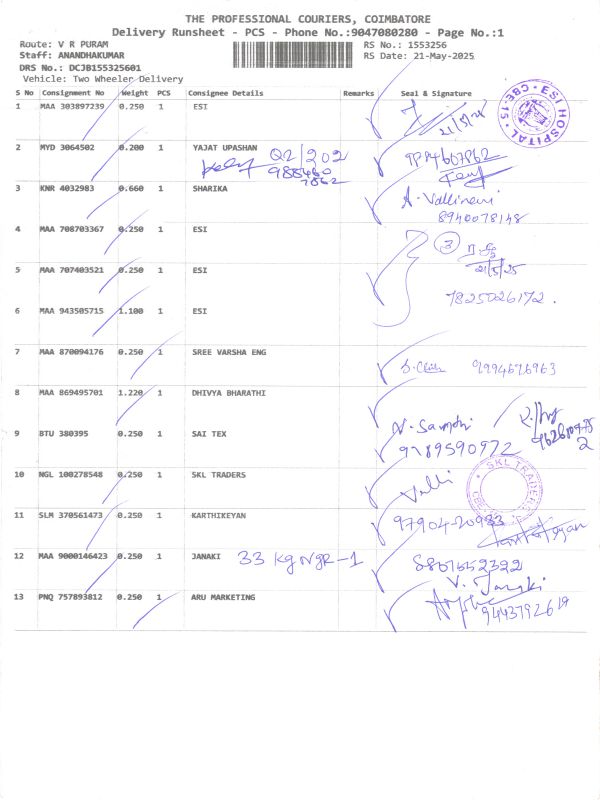 THE PROFESSIONAL COURIERS, COIMBATORE
Delivery Runsheet - PCS - Phone No.:9047080280 - Page No.:1
Route: V R PURAM
RS No.: 1553256
Staff: ANANDHAKUMAR
RS Date: 21-May-2025
DRS No.: DCJB155325601
Vehicle: Two Wheeler Delivery
S No Consignment No Weight PCS Consignee Details Remarks Seal & Signature
1 MAA 303897239 0.250 1 ESI 21/5/25
ESI HOSPITAL CBE-15
2 MYD 3064502 0.200 1 YAJAT UPASHAN Q2/202 9884607862
988460
7862
3 KNR 4032983 0.660 1 SHARIKA A. Vallinavi
8940078148
4 MAA 708703367 0.250 1 ESI 3
21/5/25
5 MAA 707403521 0.250 1 ESI
7825026172.
6 MAA 943505715 1.100 1 ESI
7 MAA 870094176 0.250 1 SREE VARSHA ENG 9994676963
8 MAA 869495701 1.220 1 DHIVYA BHARATHI
9 BTU 380395 0.250 1 SAI TEX
9789590972
10 NGL 100278548 0.250 1 SKL TRADERS Valli
SKL TRADERS
11 SLM 370561473 0.250 1 KARTHIKEYAN 97904-20933
12 MAA 9000146423 0.250 1 JANAKI 33 Kg NGR-1
V. Janaki
13 PNQ 757893812 0.250 1 ARU MARKETING